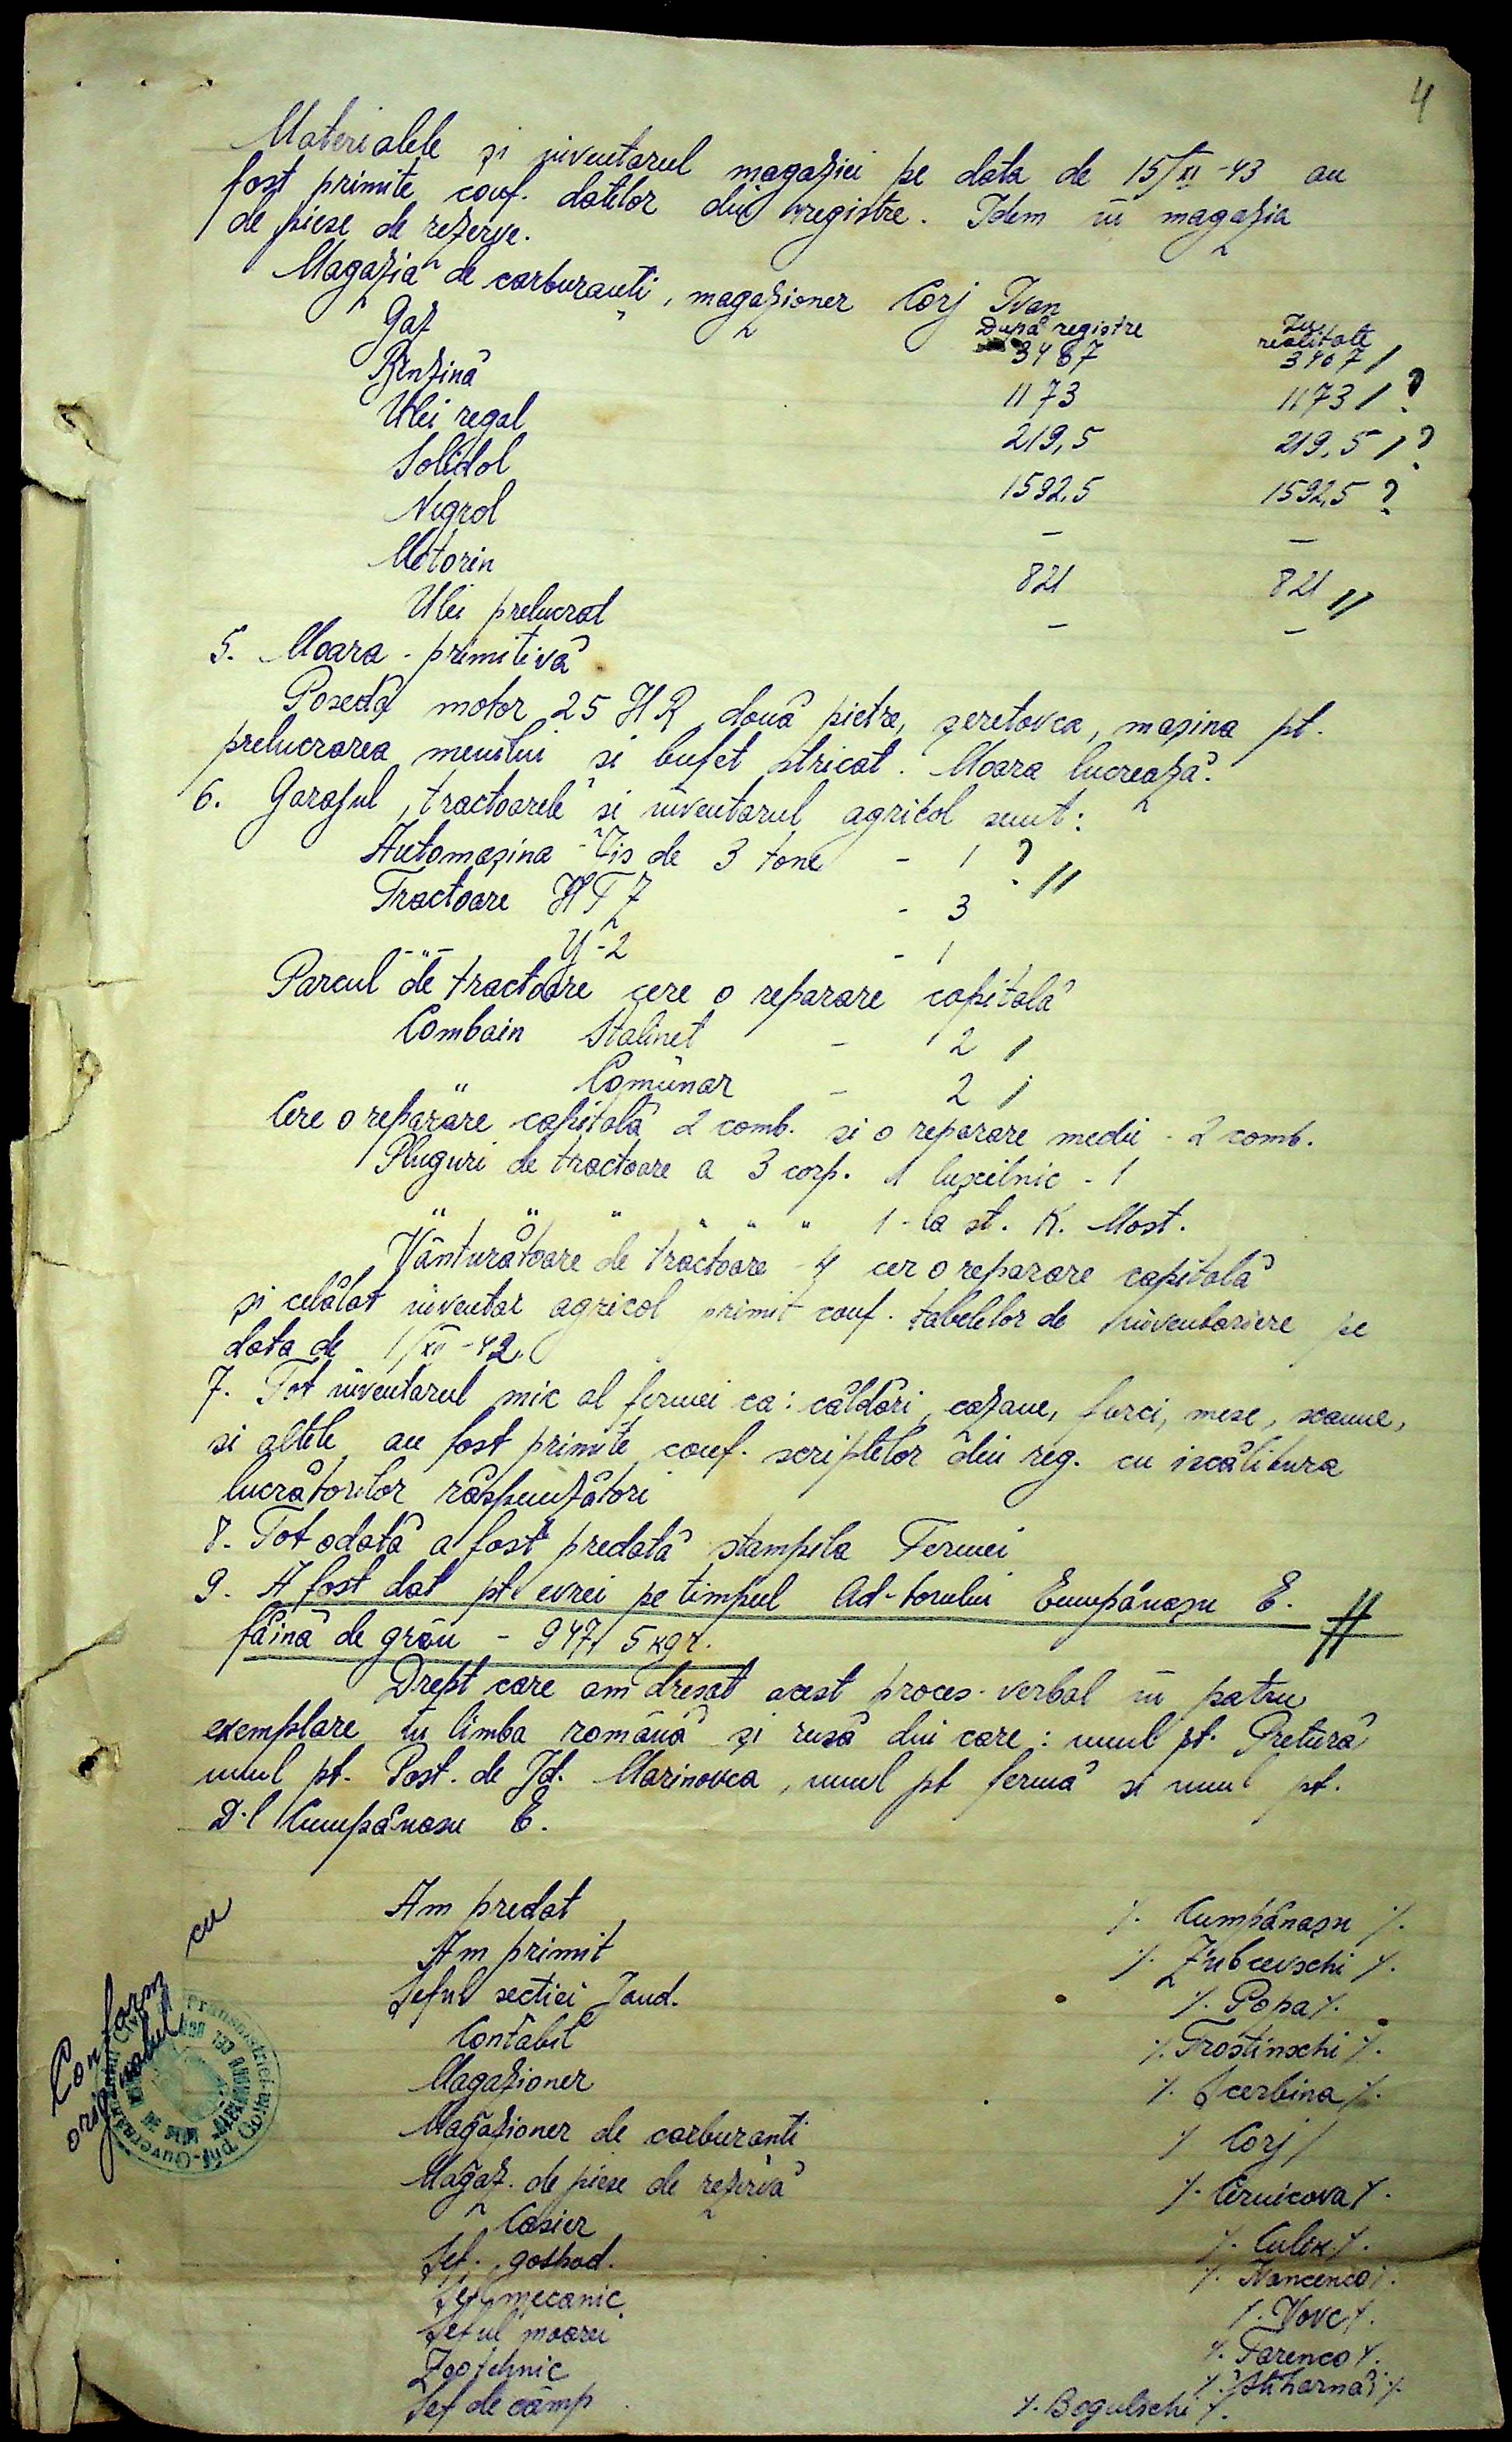 4
Materialele și inventarul magaziei pe data de 15/XI-43 au
fost primite conf. datelor din registre. Idem in magazia
de piese de rezerve.
Magazia de carburanti, magazioner Corj Ivan
După registre In realitate
Gaz 3467 3467 /
Benzină 1173 1173 / ?
Ulei regal 219,5 219,5 / ?
Solidol 1592,5 1592,5 ?
Nigrol — —
Motorin 821 821 //
Ulei prelucrat — —
5. Moara - primitivă
Posedă motor 25 HR, două pietre, șeretovca, mașina pt.
prelucrarea meiului si bufet stricat. Moara lucrează.
6. Garajul, tractoarele si inventarul agricol sunt:
Automașina - Zis de 3 tone - 1 ?
Tractoare HTZ - 3 //
-"- У-2 - 1
Parcul de tractoare cere o reparare capitală
Combain Stalinet - 2 /
" Comunar - 2 /
Cere o reparare capitală 2 comb. si o reparare medii - 2 comb.
Pluguri de tractoare a 3 corp. 1 - 1
" " " " " " 1 - la st. K. Most.
Vânturătoare de tractoare - 4 cer o reparare capitală
și celălat inventar agricol primit conf. tabelelor de inventariere pe
data de 1/XII-42.
7. Tot inventarul mic al fermei ca: căldări, cazane, furci, mese, scaune,
si altele au fost primite conf. scriptelor din reg. cu iscălitura
lucrătorilor răspunzători
8. Tot odată a fost predată stampila Fermei
9. A fost dat pt. evrei pe timpul Ad-torului Cumpănașu E.
făină de grâu - 947,5 kgr.
Drept care am dresat acest proces-verbal in patru
exemplare in limba română și rusă din care: unul pt. Pretură
unul pt. Post. de Jd. Marinovca, unul pt fermă si unul pt.
D-l Cumpănasu E.
Am predat /. Cumpănașu /.
Am primit /. Zubcevschi /.
Șeful sectiei Jand. /. Popa /.
Contabil /. Trostinschi /.
Magazioner /. Scerbina /.
Magazioner de carburanti / Corj /
Magaz. de piese de rezervă /. Cernicova /.
Casier /. Culik /.
Șef. gospod. /. Nancenco /.
Șef mecanic /. Vovc /.
Șeful moarei /. Tarenco /.
Zootehnic
Șef de câmp /. Bogulschi /.
Conform cu
originalul